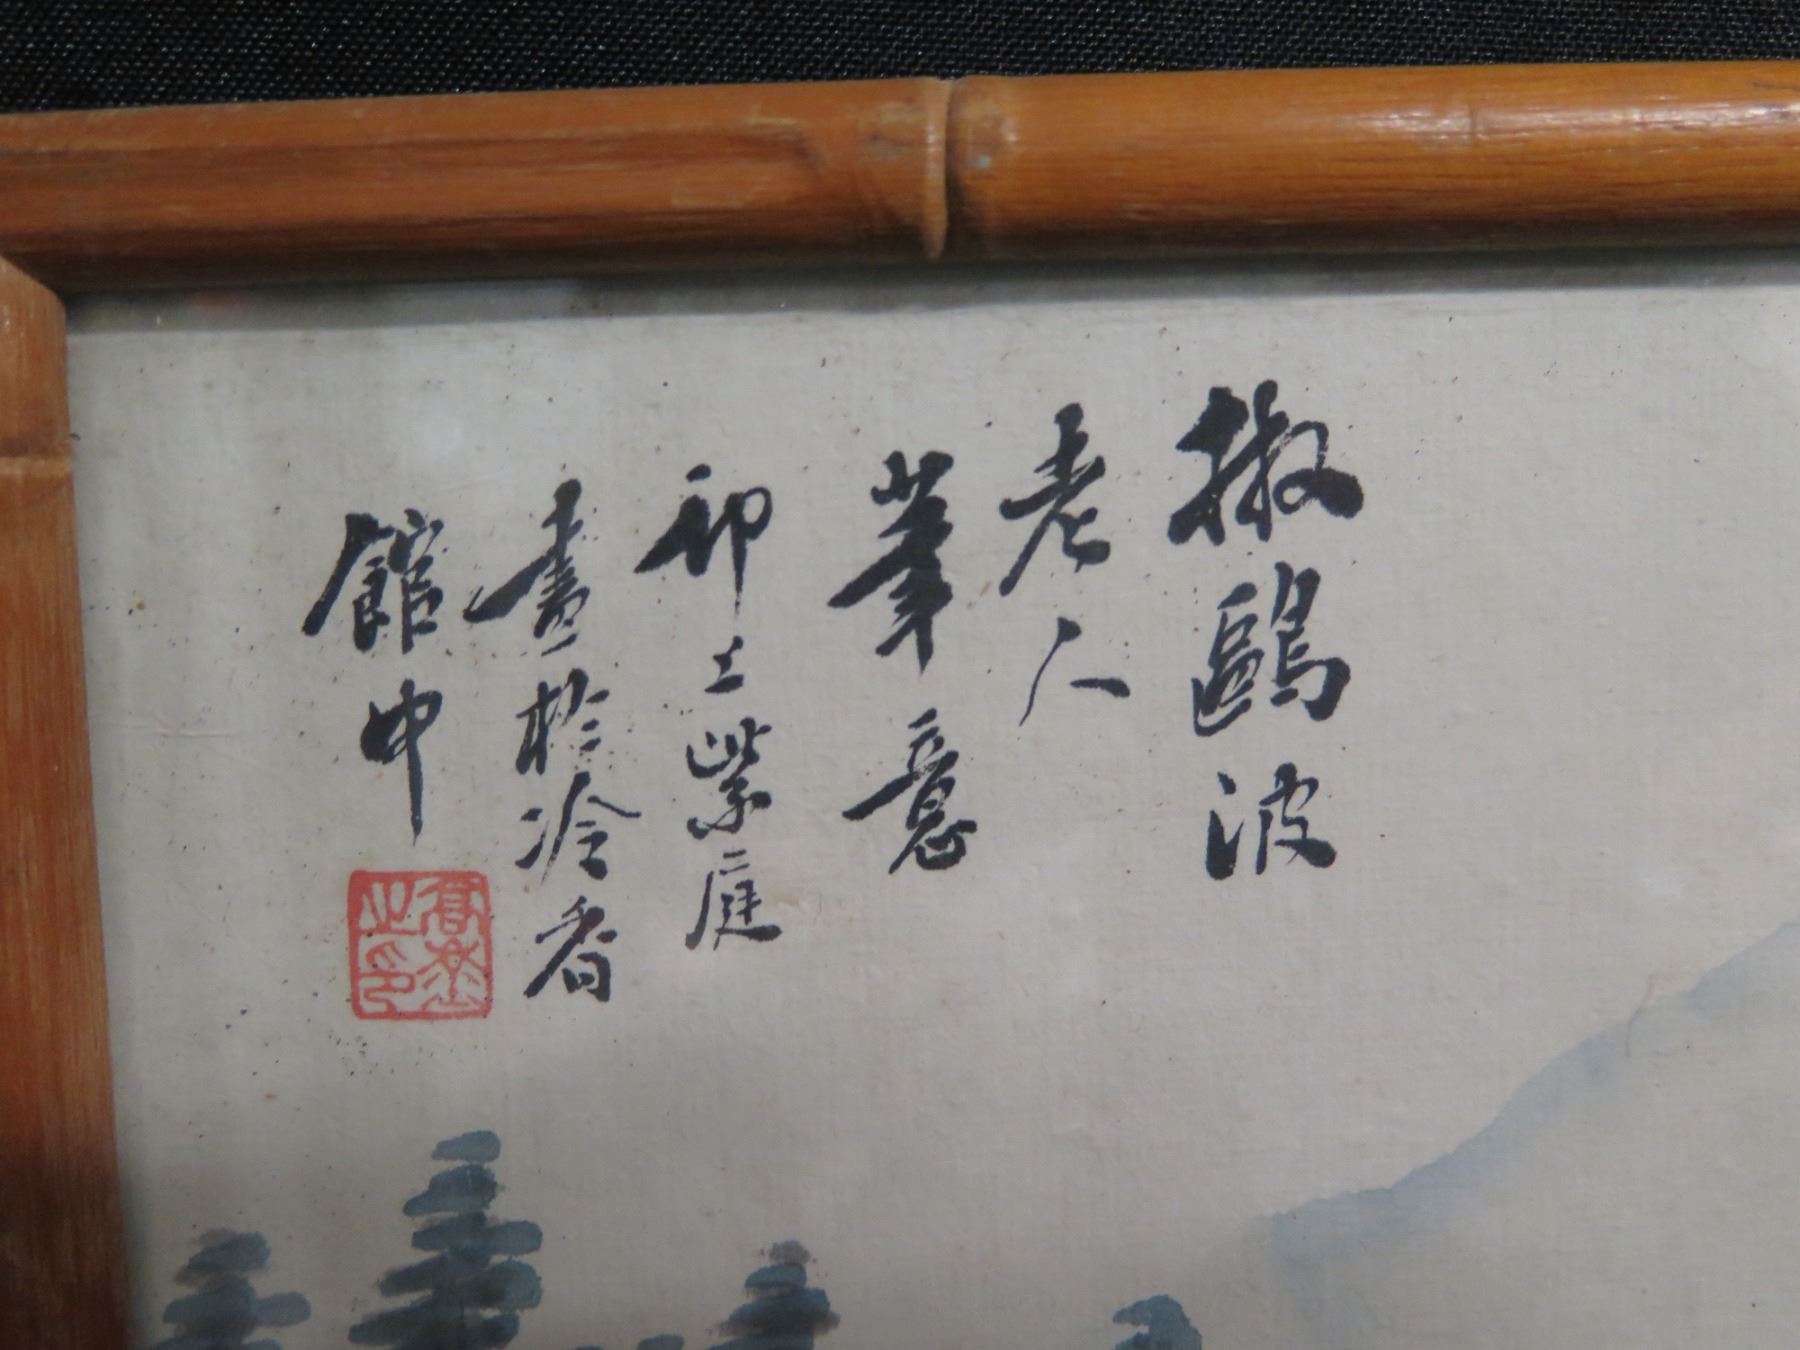 撫鷗波
老人
筆意
卯上紫庭
畫於冷香
館中